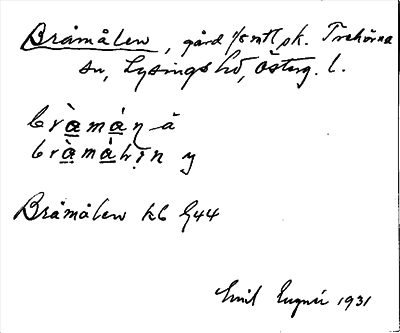 Bråmålen, gård 1/8 mtl sk. Trehörna
sn, Lysings hd, Österg. l.
bràmán å
bràmàlin y
Bråmålen kb G44
Emil 1931